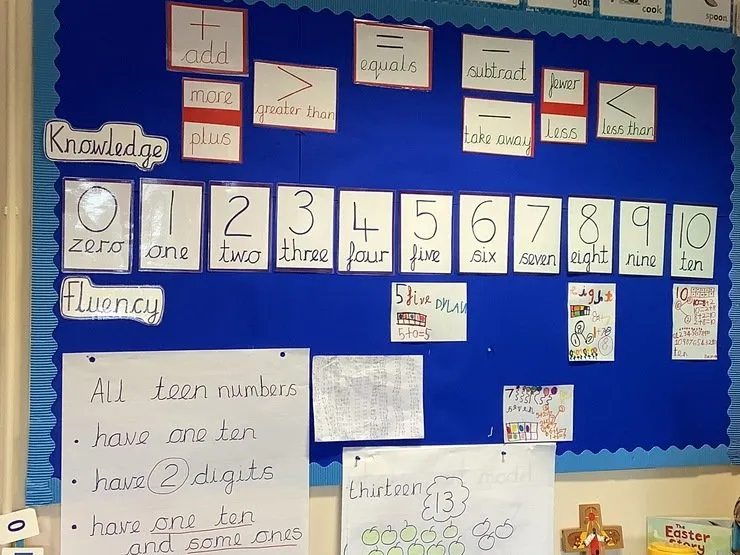 cook
spoon
+
add
more
plus
>
greater than
=
equals
−
subtract
−
take away
fewer
less
<
less than
Knowledge
0
zero
1
one
2
two
3
three
4
four
5
five
6
six
7
seven
8
eight
9
nine
10
ten
Fluency
5 five DYLAN
5+0=5
eight
10
ten
7
seven
All teen numbers
• have one ten
• have 2 digits
• have one ten
and some ones
thirteen
13
0
The
Easter
Story